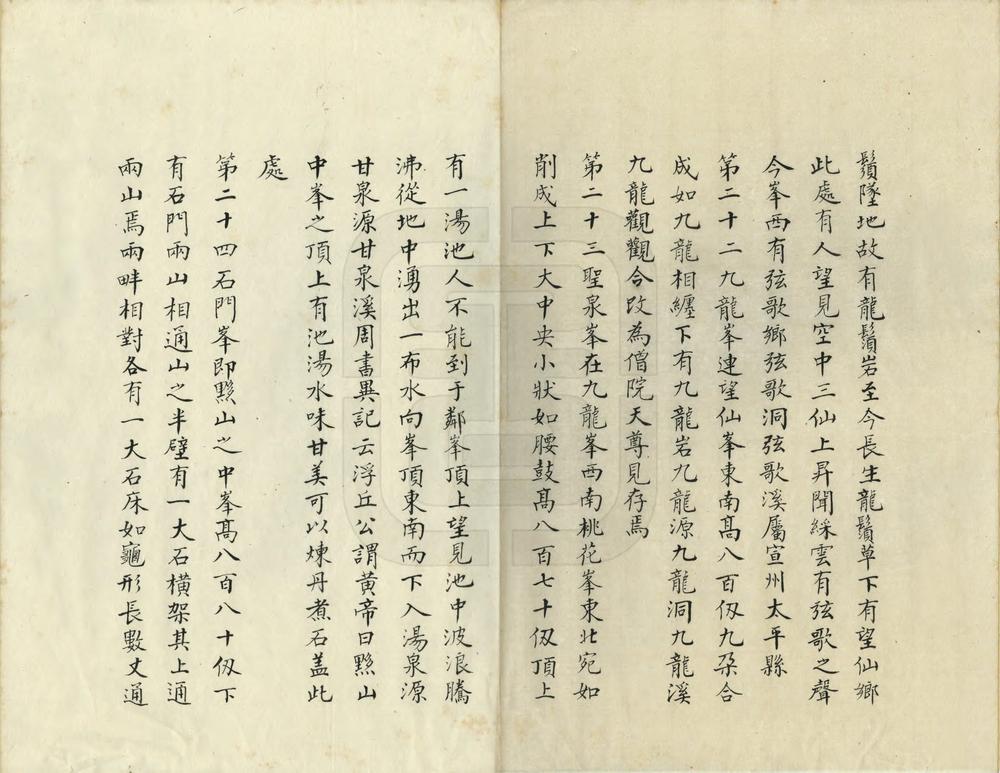 鬚墜地故有龍鬚岩至今長生龍鬚草下有望仙鄉
此處有人望見空中三仙上昇聞綵雲有弦歌之聲
今峯西有弦歌鄉弦歌洞弦歌溪屬宣州太平縣
第二十二九龍峯連望仙峯東南髙八百仭九朶合
成如九龍相纏下有九龍岩九龍源九龍洞九龍溪
九龍觀觀合改為僧院天尊見存焉
第二十三聖泉峯在九龍峯西南桃花峯東北宛如
削成上下大中央小狀如腰鼓髙八百七十仭頂上
有一湯池人不能到于鄰峯頂上望見池中波浪騰
沸從地中湧出一布水向峯頂東南而下入湯泉源
甘泉源甘泉溪周書異記云浮丘公謂黃帝曰黟山
中峯之頂上有池湯水味甘美可以煉丹煮石盖此
處
第二十四石門峯即黟山之中峯髙八百八十仭下
有石門兩山相通山之半壁有一大石橫架其上通
兩山焉兩畔相對各有一大石床如龜形長數丈通